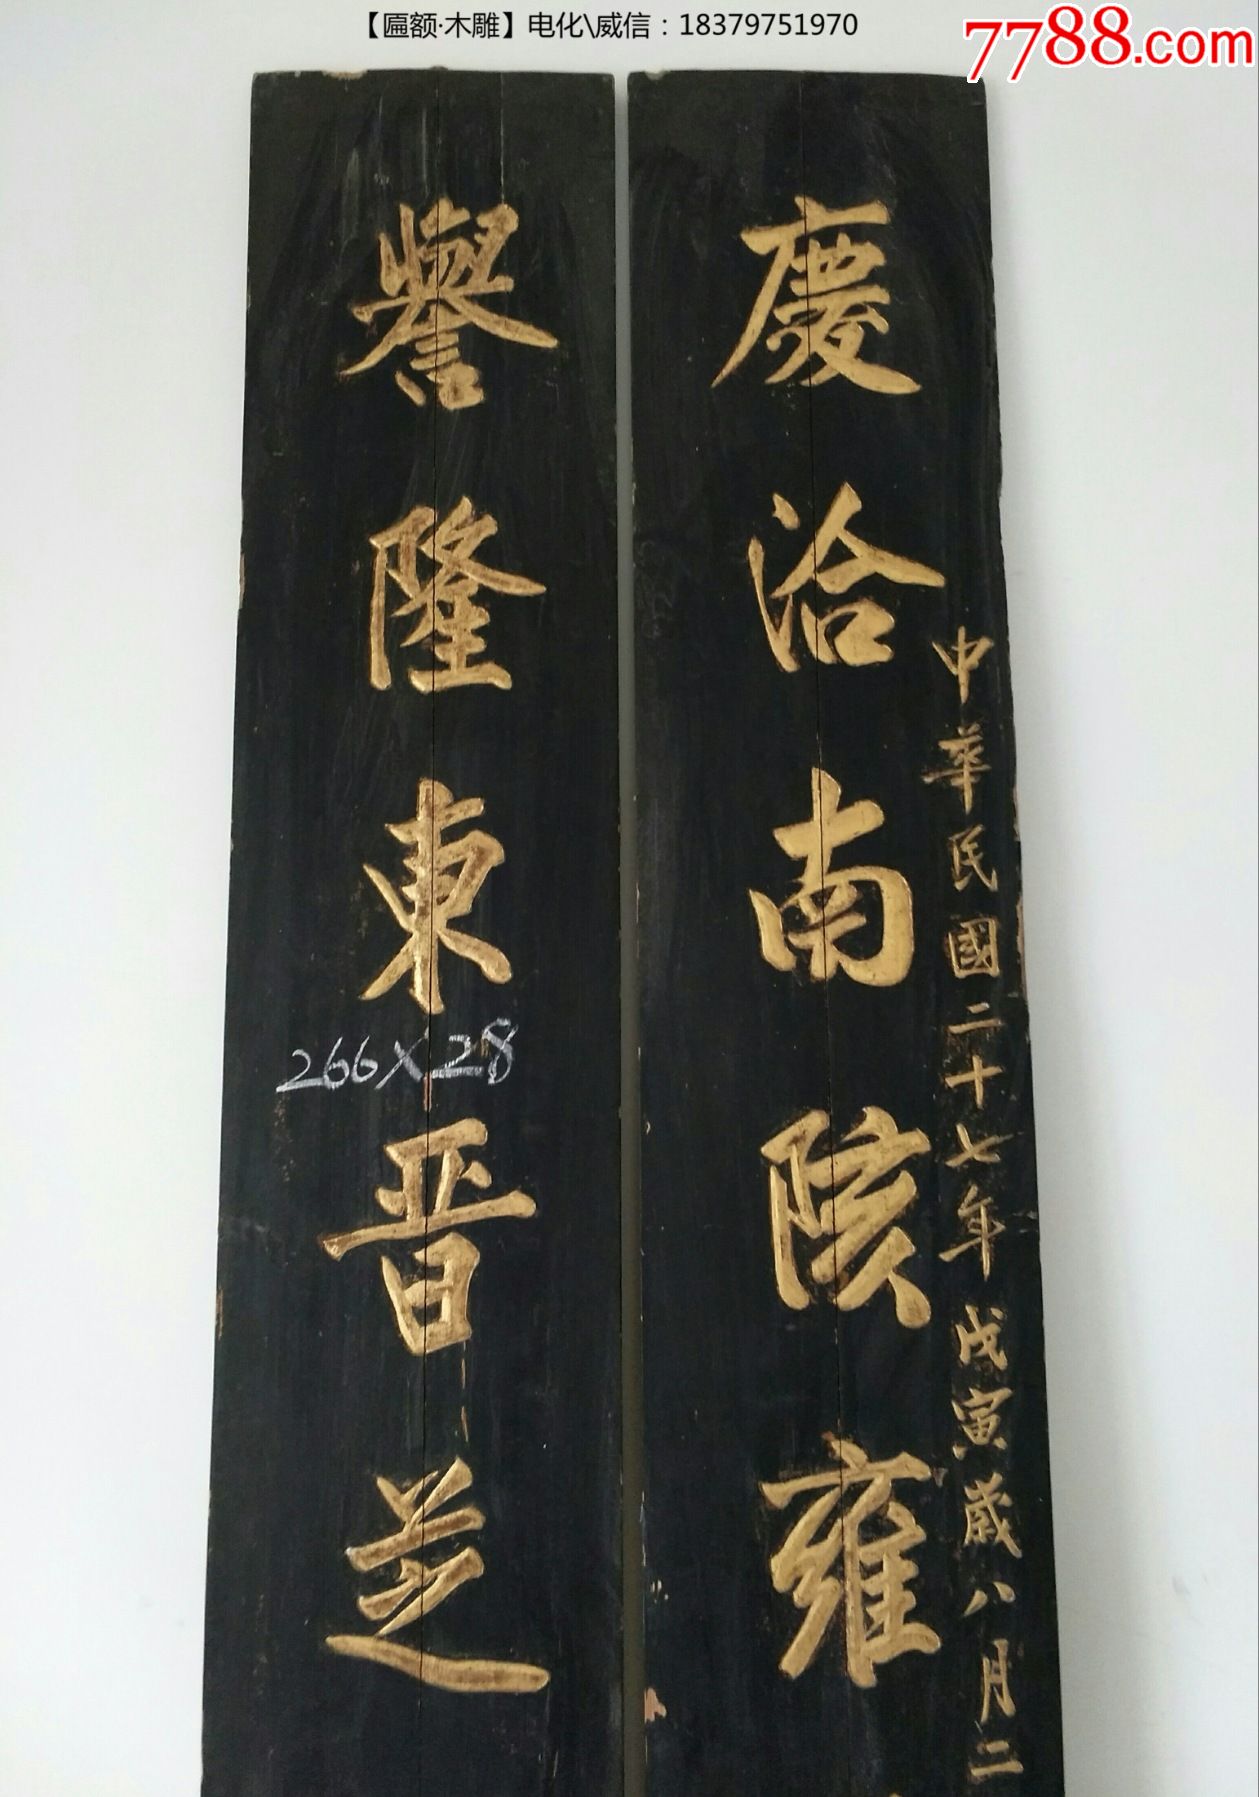 【匾额·木雕】电化\威信：18379751970
7788.com
慶洽南陔雍
中華民國二十七年戊寅歲八月二
譽隆東晋芝
266×28